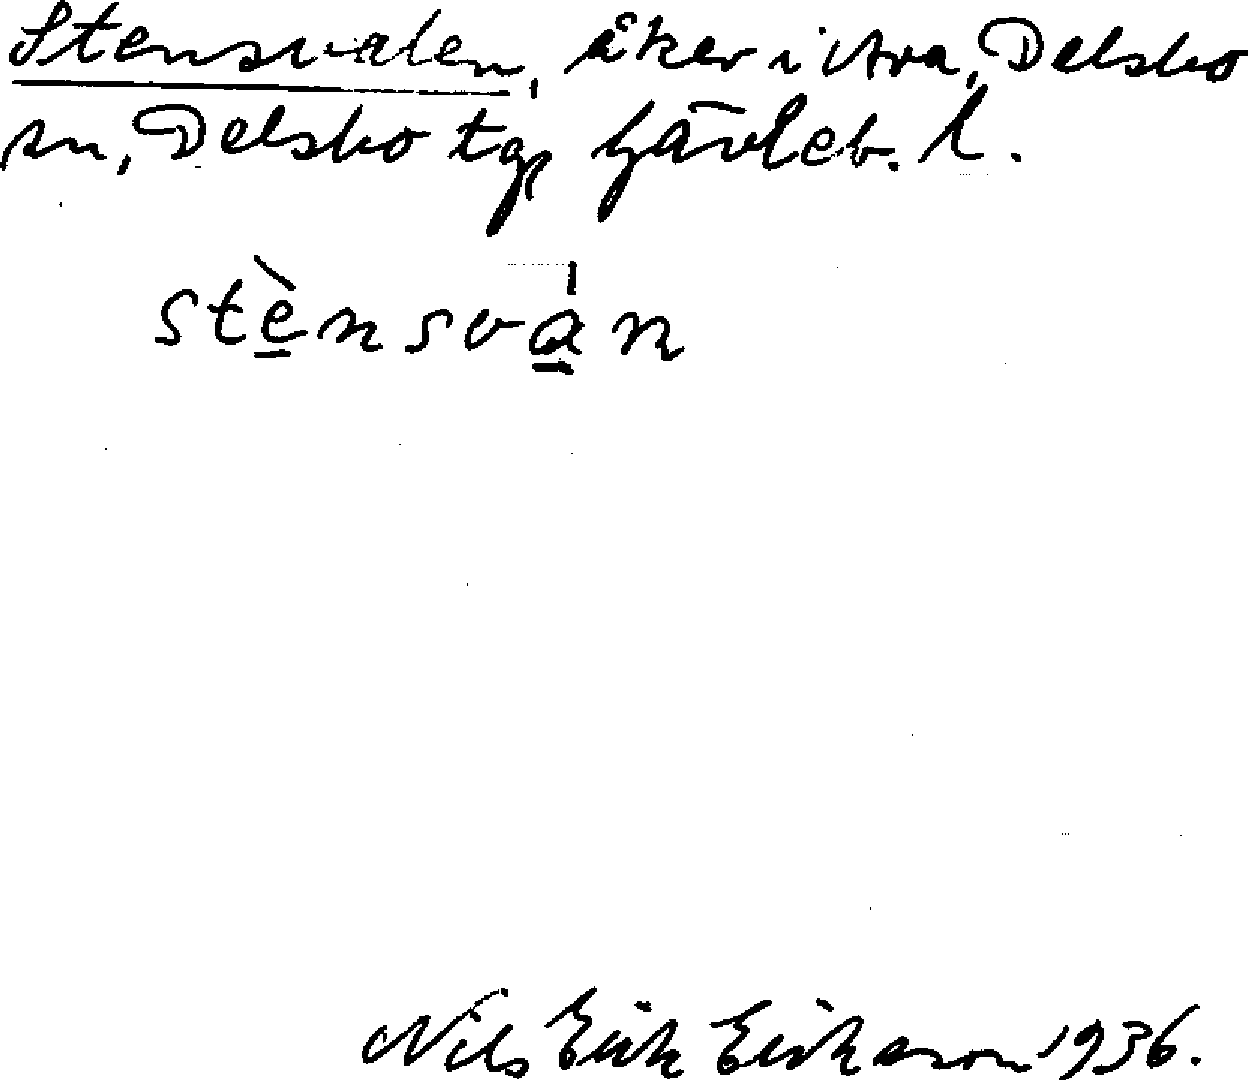 Stensvalen, åker i Ava, Delsbo
sn, Delsbo tg, Gävleb. l.
stènsván
Nils Erik Eriksson 1936.